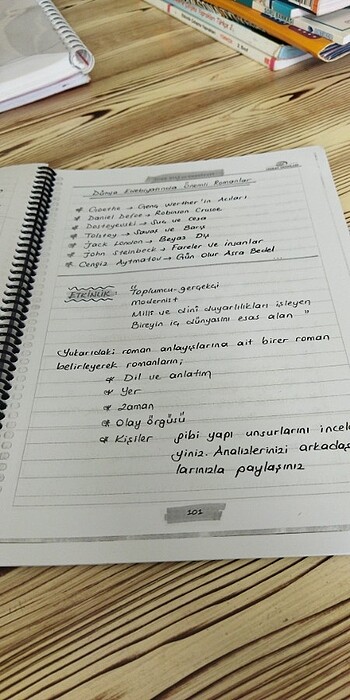 Dünya Edebiyatında Önemli Romanlar
* Goethe → Genç Werther'in Acıları
* Daniel Defoe → Robinson Crusoe
* Dostoyevski → Suç ve Ceza
* Tolstoy → Savaş ve Barış
* Jack London → Beyaz Diş
* John Steinbeck → Fareler ve İnsanlar
* Cengiz Aytmatov → Gün Olur Asra Bedel
ETKİNLİK: " Toplumcu-gerçekçi
Modernist
Milli ve dini duyarlılıkları işleyen
Bireyin iç dünyasını esas alan "
Yukarıdaki roman anlayışlarına ait birer roman
belirleyerek romanların;
* Dil ve anlatım
* Yer
* Zaman
* Olay örgüsü
* Kişiler gibi yapı unsurlarını incele
yiniz. Analizlerinizi arkadaş
larınızla paylaşınız
101